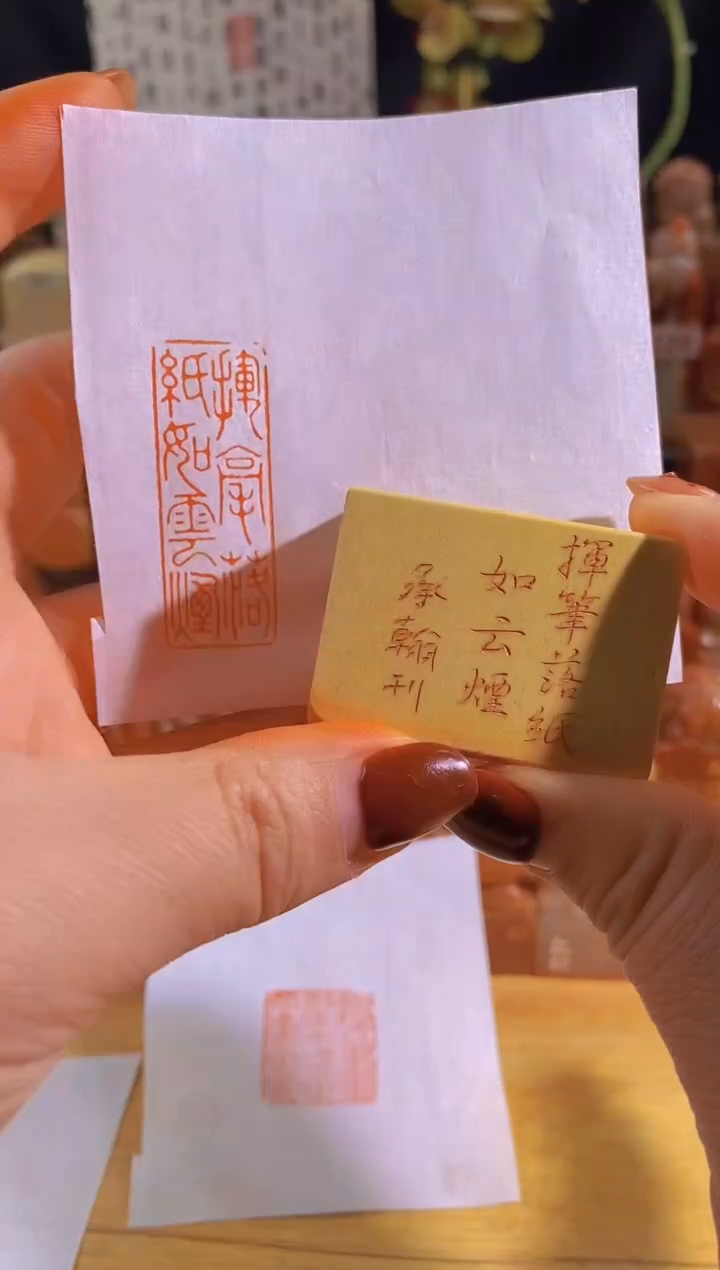 揮毫落
紙如雲煙
揮筆落紙
如云煙
承翰刊